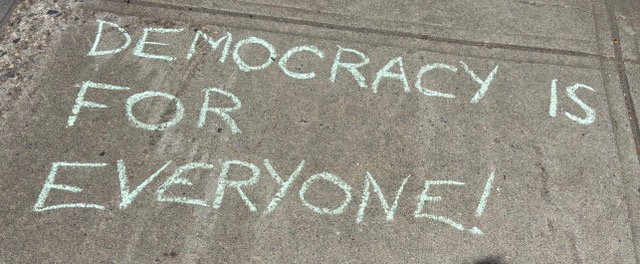 DEMOCRACY IS
FOR
EVERYONE!